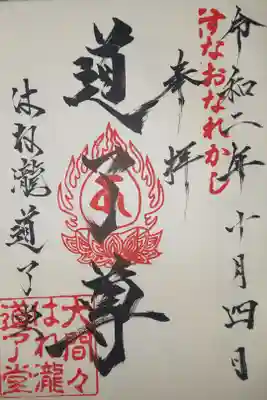 令和二年十月四日
すなおなれかし
奉拝
道了尊
は祢瀧道了
大間々
はね瀧
道了堂